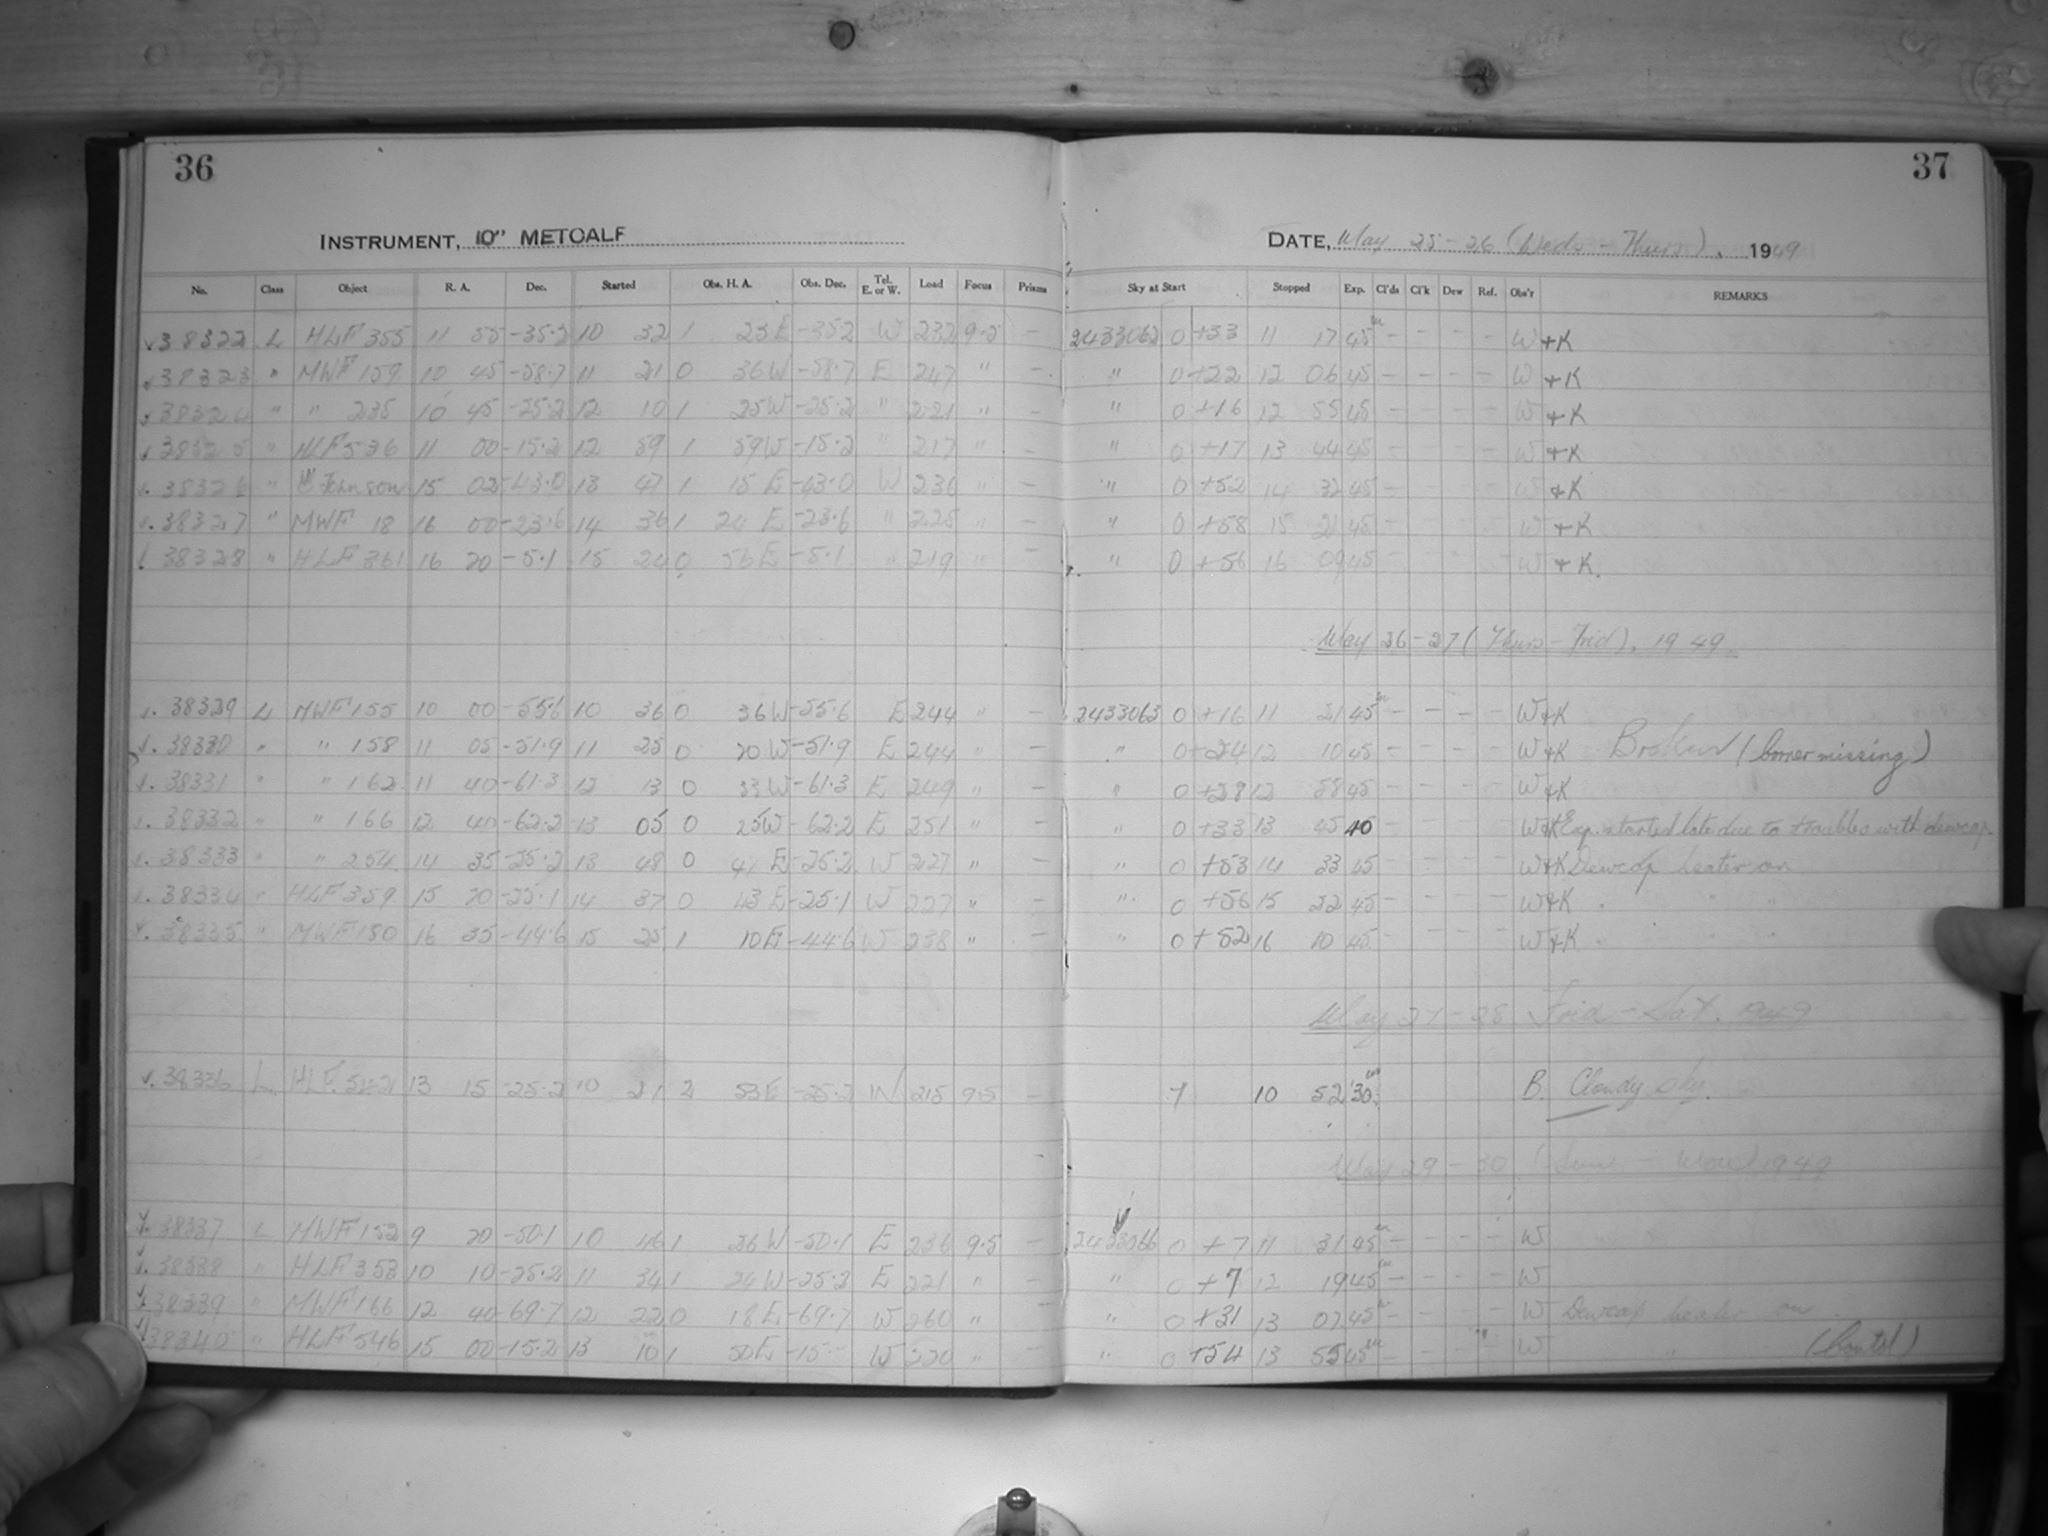 36
37
INSTRUMENT, 10" METCALF
DATE, May 25-26 (Weds - Thurs), 1949
No. Class Object R. A. Dec. Started Obs. H. A. Obs. Dec. Tel. E. or W. Load Focus Prisms Sky at Start Stopped Exp. Cl'ds Cl'k Dew Ref. Obs'r REMARKS
38322 L HLF 355 11 55 -35.2 10 32 1 23 E -35.2 W 232 9.5 - 2433062 0 +33 11 17 45 - - - - W +K
38323 " MWF 159 10 45 -58.7 11 21 0 36 W -58.7 E 247 " - " 0 +22 12 06 45 - - - - W +K
38324 " " 235 10 45 -25.2 12 10 1 25 W -25.2 " 221 " - " 0 +16 12 55 45 - - - - W +K
38325 " HLF 536 11 00 -15.2 12 59 1 59 W -15.2 " 217 " - " 0 +17 13 44 45 - - - - W +K
38326 " Johnson 15 02 -43.0 13 47 1 15 E -43.0 W 236 " - " 0 +52 14 32 45 - - - - W +K
38327 " MWF 18 16 00 -23.6 14 36 1 24 E -23.6 " 225 " - " 0 +58 15 21 45 - - - - W +K
38328 " HLF 361 16 20 -5.1 15 24 0 56 E -5.1 " 219 " - " 0 +56 16 09 45 - - - - W +K.
May 26-27 (Thurs - Frid), 1949.
38329 L MWF 155 10 00 -55.6 10 36 0 36 W -55.6 E 244 " - 2433063 0 +16 11 21 45 - - - - W +K
38330 " " 158 11 05 -51.9 11 25 0 20 W -51.9 E 244 " - " 0 +24 12 10 45 - - - - W +K Broken (Corner missing)
38331 " " 162 11 40 -61.3 12 13 0 33 W -61.3 E 249 " - " 0 +28 12 58 45 - - - - W +K
38332 " " 166 12 40 -62.2 13 05 0 25 W -62.2 E 251 " - " 0 +33 13 45 40 - - - - W +K Exp. started late due to troubles with dewcap
38333 " " 254 14 35 -25.2 13 48 0 47 E -25.2 W 227 " - " 0 +53 14 33 45 - - - - W +K Dewcap heater on
38334 " HLF 359 15 20 -25.1 14 37 0 43 E -25.1 W 227 " - " 0 +56 15 22 45 - - - - W +K " " "
38335 " MWF 180 16 35 -44.6 15 25 1 10 E -44.6 W 238 " - " 0 +52 16 10 45 - - - - W +K " " "
May 27-28 Frid - Sat. 1949
38336 L HLF 542 13 15 -25.2 10 21 2 53 E -25.2 W 215 9.5 - 7 10 52 30 B. Cloudy sky.
May 29-30 (Sun - Mon) 1949
38337 L MWF 152 9 20 -50.1 10 46 1 36 W -50.1 E 236 9.5 - 2433066 0 +7 11 31 45 - - - - W
38338 " HLF 353 10 10 -25.2 11 34 1 24 W -25.2 E 221 " - " 0 +7 12 19 45 - - - - W
38339 " MWF 166 12 40 -69.7 12 22 0 18 E -69.7 W 260 " - " 0 +31 13 07 45 - - - - W Dewcap heater on
38340 " HLF 546 15 00 -15.2 13 10 1 50 E -15. W 220 " - " 0 +54 13 55 45 - - - W " (Contd)